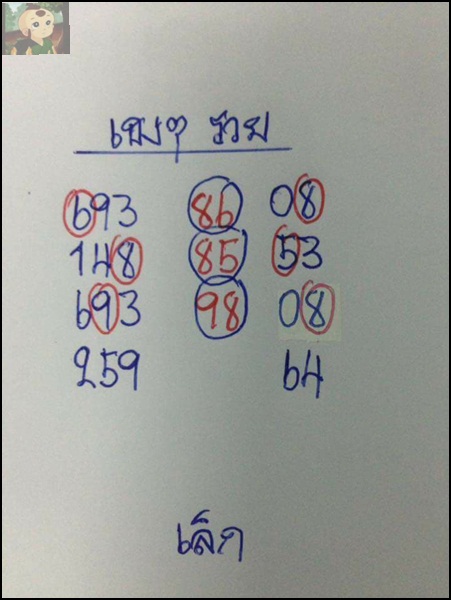 เฮงๆ รวย
693 86 08
148 85 53
693 98 08
259 64
เล็ก